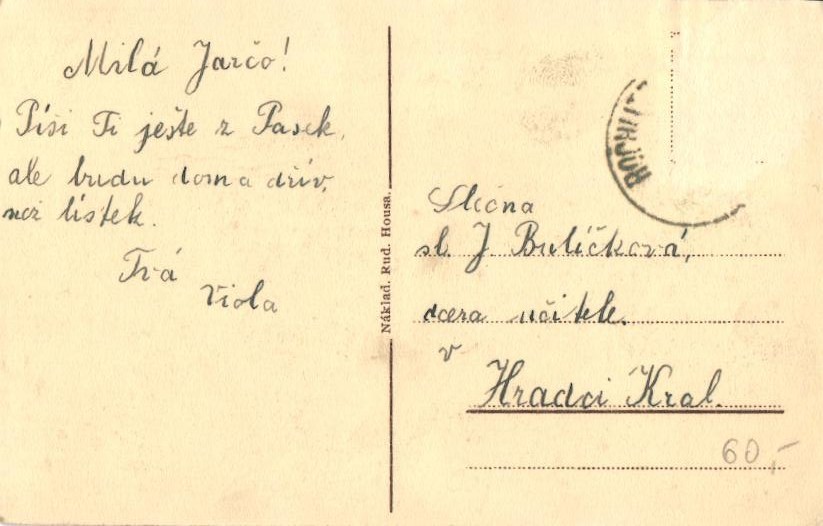 Milá Jarčo!
Píši Ti ješte z Pasek,
ale budu doma dřív,
než lístek.
Tvá
Viola
Náklad. Rud. Housa.
Slečna
sl. J Bulíčková,
dcera učitele.
v
Hradci Král.
60,-